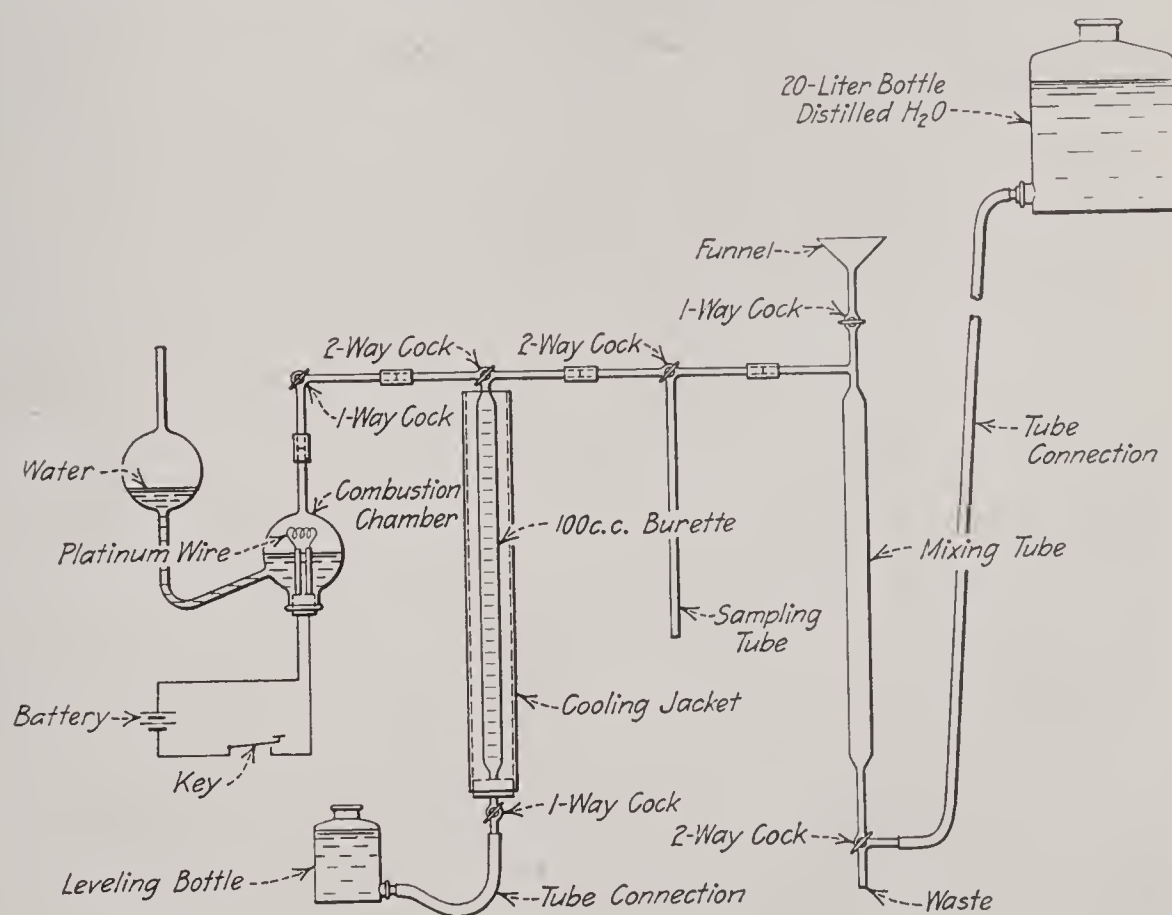 20-Liter Bottle
Distilled H₂O
Funnel
1-Way Cock
2-Way Cock
2-Way Cock
1-Way Cock
Water
Combustion
Chamber
Platinum Wire
100c.c. Burette
Tube
Connection
Mixing Tube
Sampling
Tube
Cooling Jacket
Battery
Key
1-Way Cock
2-Way Cock
Leveling Bottle
Tube Connection
Waste